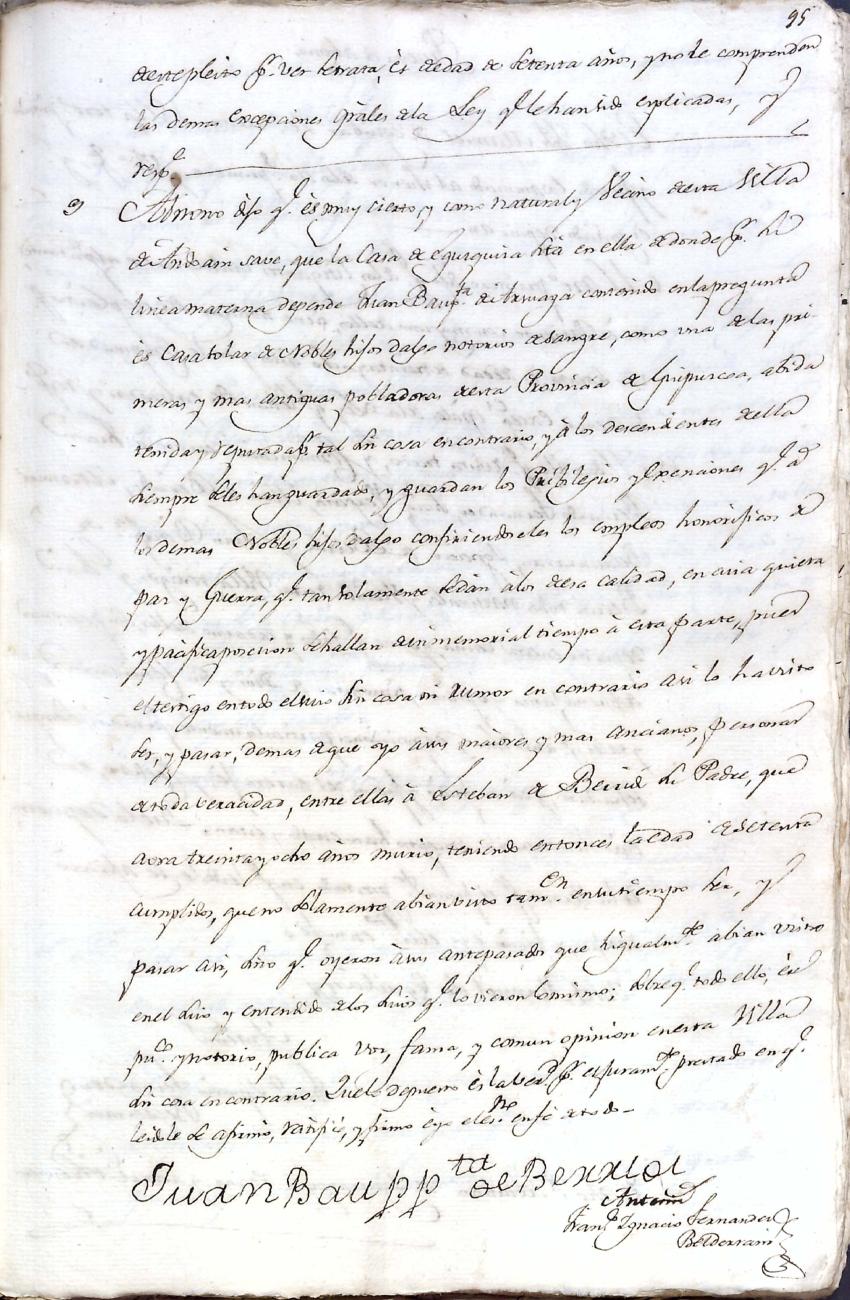 95
de este pleito pr. ver se trata, és de edad de setenta años, y no le comprenden
las demas excepciones grâles de la Ley qe. le han sido explicadas, y
respe.
9 Al noveno dijo qe. és muy cierto, y como natural y Vecino de esta Villa
de Andoain save, que la Casa de eguzquiza sita en ella de donde pr. su
linea materna depende Juan Baupta. de Arsuaga contenido en la pregunta
és Casa solar de Nobles hijos dalgo notorios de sangre, como una de las pri-
meras y mas antiguas pobladoras de esta Provincia de Guipuzcoa, abida
tenida y reputada pr. tal sin cosa en contrario, y à los descendientes de ella
siempre se les han guardado, y guardan los Pribilegios y Exenciones qe. a
los demas Nobles hijos dalgo confiriendoseles los empleos honorificos de
paz y Guerra, qe. tan solamente se dan à los de esa calidad, en cuia quieta
y pacifica posecion se hallan de inmemorial tiempo à esta parte, pues
el testigo en todo el suio sin cosa ni rumor en contrario asi lo ha visto
ser, y pasar, demas de que oyo à sus maiores y mas ancianos, personas
de toda veracidad, entre ellas à Esteban de Berrid su Padre, que
aora treinta y ocho años murio, teniendo entonces la edad de setenta
cumplidos, que no solamente abian visto tamen. en su tiempo ser, y
pasar asi, sino qe. oyeron à sus antepasados que higualmte. abian visto
en el suio y entendido de los suios qe. lo vieron lo mismo; sobre qe. todo ello, és
puco. y notorio, publica voz, fama, y comun opinion en esta Villa
sin cosa en contrario. Que lo depuesto és la verd. pr. el juramto. prestado en qe.
leidole se afirmó, ratificó, y firmó é yo el essno. en fé de todo -
Juan Baupptta de Berridi
Antemi
Franco. Ignacio Fernandez
Belderrain